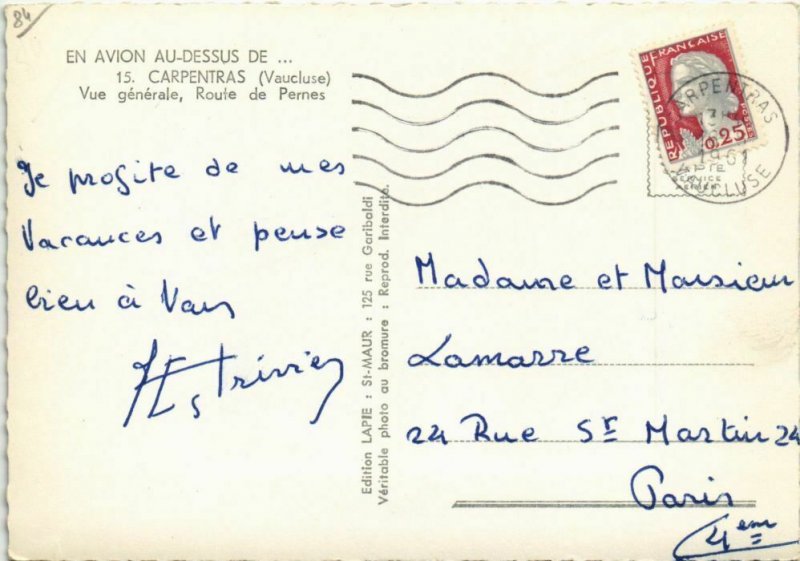 84
EN AVION AU-DESSUS DE ...
15. CARPENTRAS (Vaucluse)
Vue générale, Route de Pernes
Je profite de mes
Vacances et pense
bien à Vous
Edition LAPIE : St-MAUR : 125 rue Garibaldi
Véritable photo au bromure : Reprod. Interdite.
REPUBLIQUE FRANÇAISE
0,25
CARPENTRAS
VAUCLUSE
Madame et Monsieur
Lamarre
22 Rue St Martin 24
Paris
4em